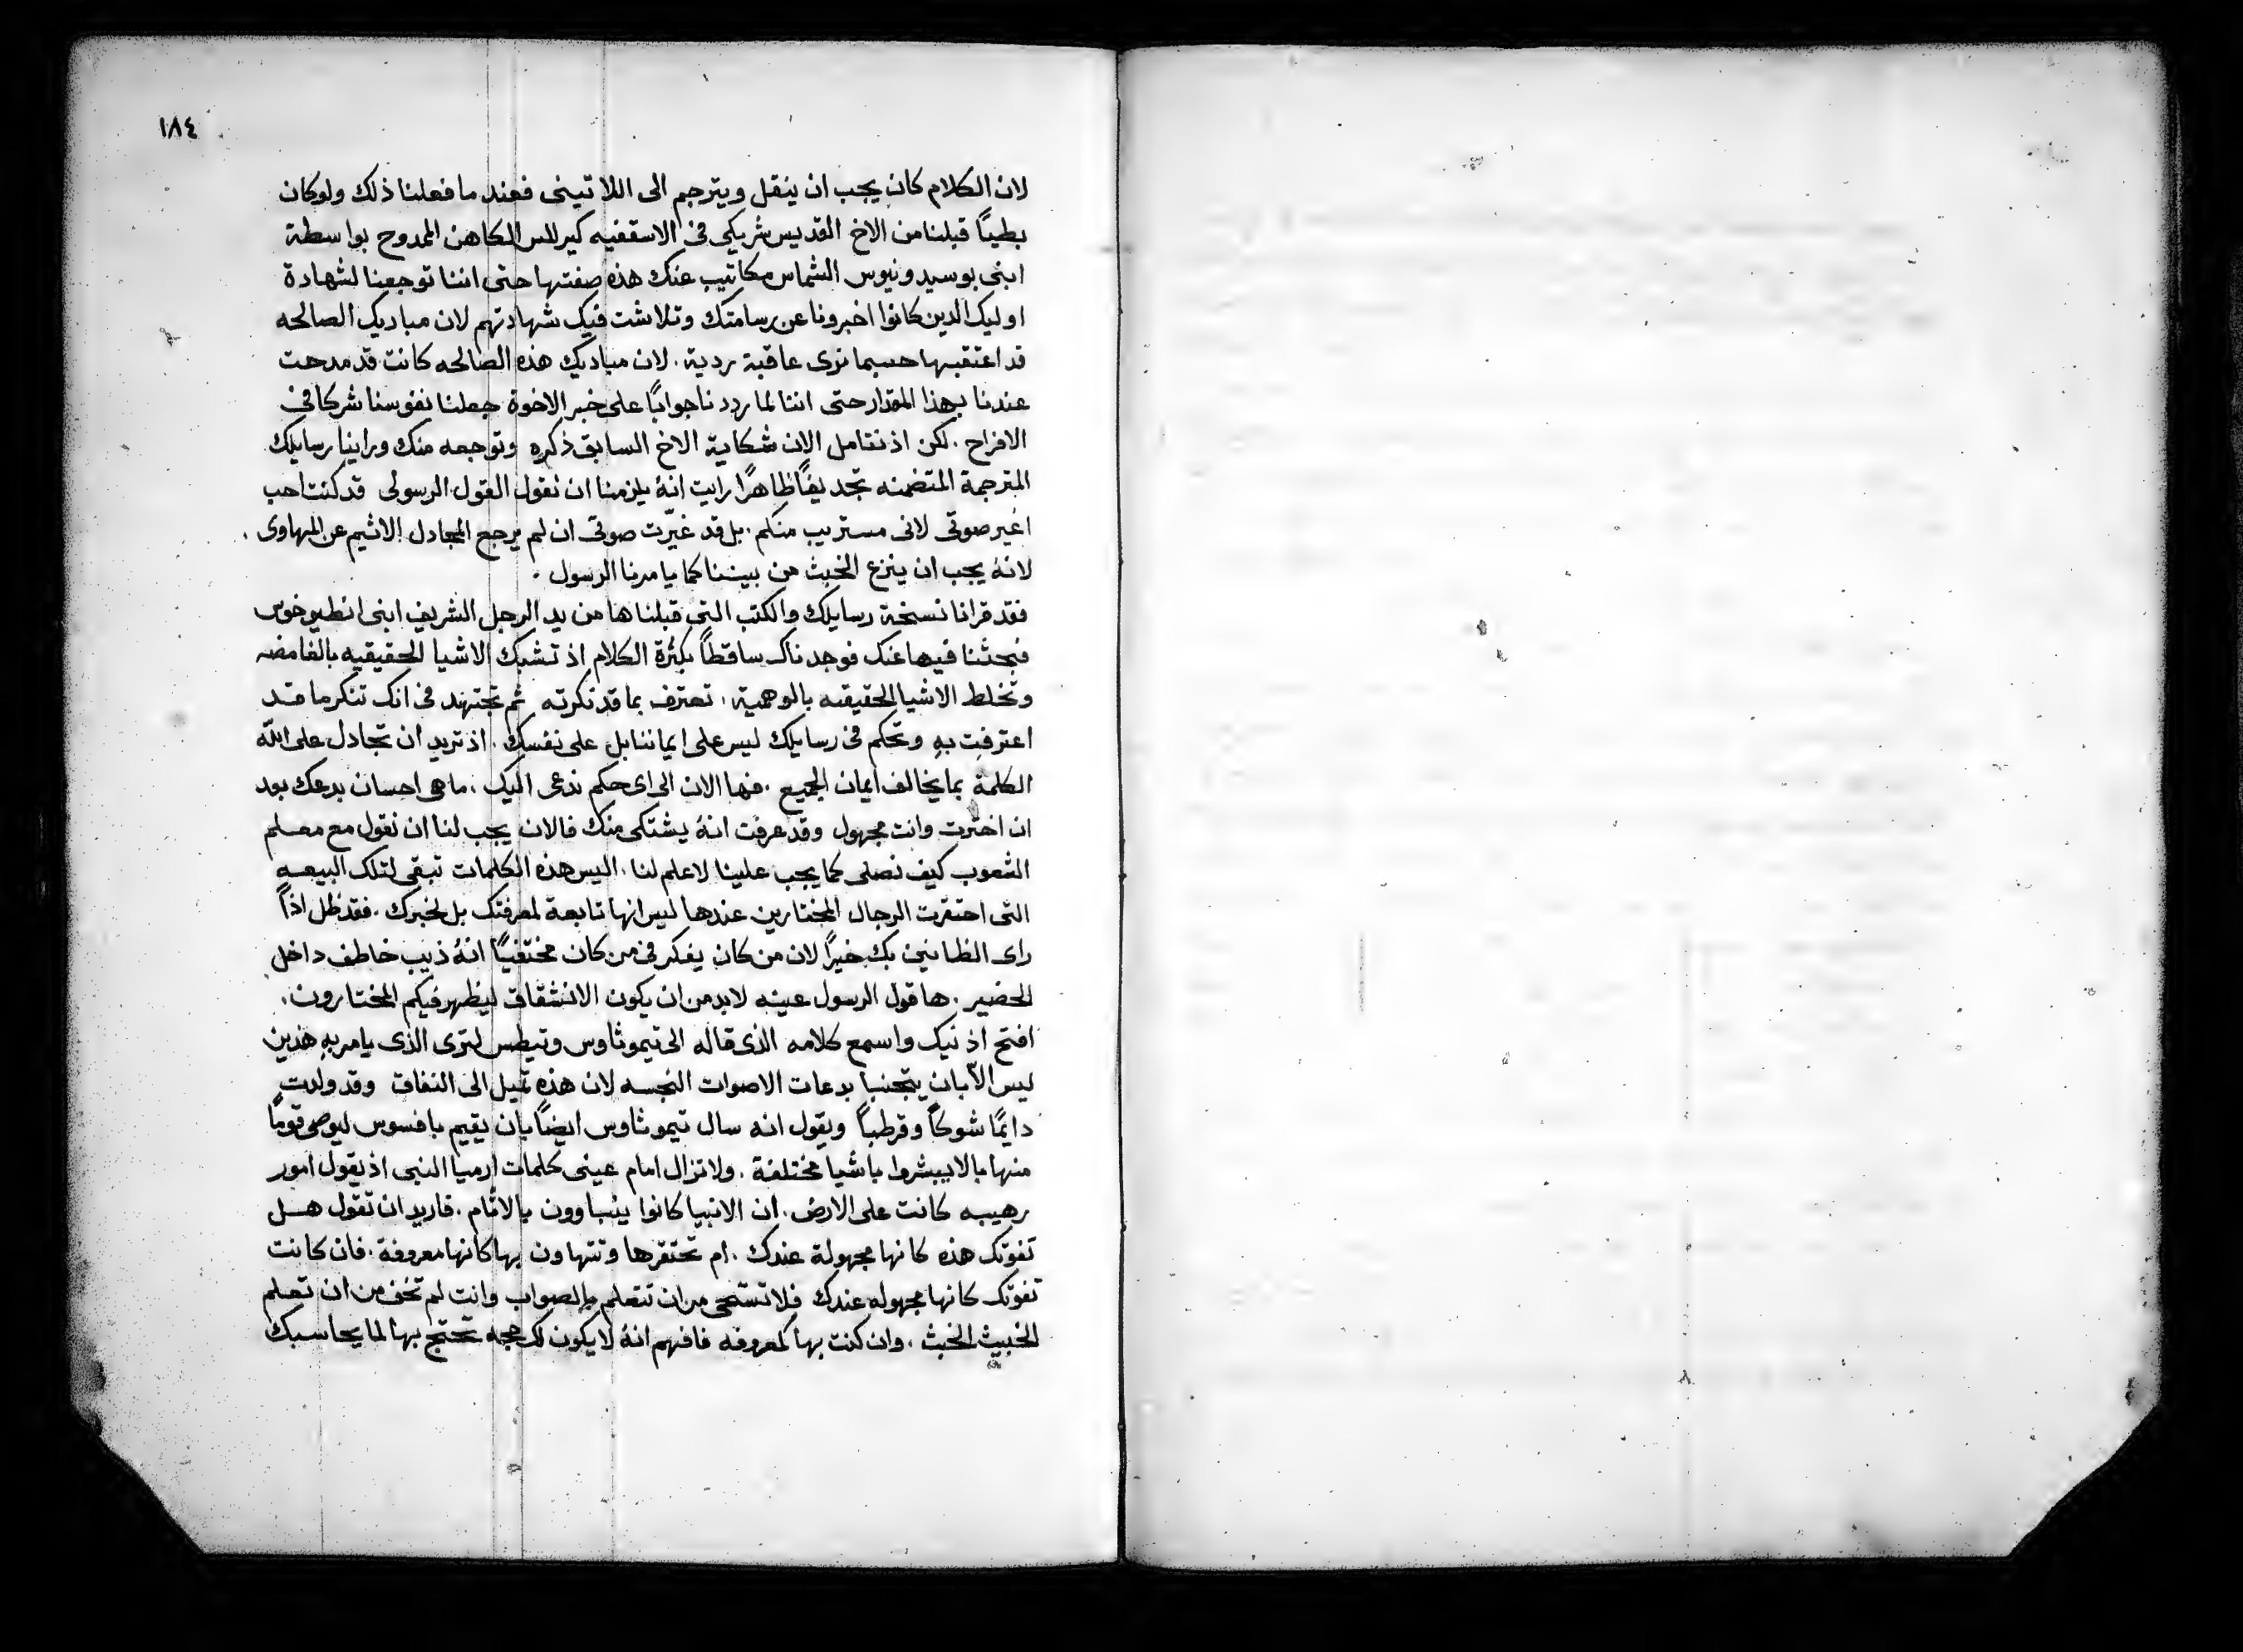 ١٨٤
لان الكلام كان يجب ان ينقل ويترجم الى اللاتينى فعند ما فعلنا ذلك ولو كان
بطيًا قبلنا من الاخ القديس شريكى فى الاسقفيه كيرللس الكاهن الممدوح بواسطة
ابنى بوسيدونيوس الشماس مكاتيب عنك هذه صفتها حتى اننا توجعنا لشهادة
اوليك الدين كانوا اخبرونا عن رسامتك وتلاشت فيك شهادتهم لان مباديك الصالحه
قد اعتقبها حسبما نرى عاقبة ردية . لان مباديك هذه الصالحه كانت قد مدحت
عندنا بهذا المقدار حتى اننا لما رددنا جوابًا على خبر الاخوة جعلنا نفوسنا شركا فى
الافراح . لكن اذ نتامل الان شكاية الاخ السابق ذكره وتوجعه منك وراينا رسايلك
المترجمة المتضمنه تجديفًا ظاهرًا رايت انهُ يلزمنا ان نقول القول الرسولى قد كنت احب
اغير صوتى لانى مستريب منكم . بل قد غيّرت صوتى ان لم يرجع المجادل الاثيم عن المهاوى .
لانهُ يجب ان ينزع الخبث من بيننا كما يامرنا الرسول .
فقد قرانا نسخة رسايلك والكتب التى قبلناها من يد الرجل الشريف ابنى انطيوخوس
فبحثنا فيها عنك فوجدناك ساقطًا بكثرة الكلام اذ تشبك الاشيا الحقيقيه بالغامضه
وتخلط الاشيا الحقيقيه بالوهمية . تعترف بما قد نكرته ثم تجتهد فى انك تنكر ما قد
اعترفت بهِ وتحكم فى رسايلك ليس على ايماننا بل على نفسك . اذ تريد ان تجادل على اللّه
الكلمة بما يخالف ايمان الجميع . فها الان الى اى حكم ندعى اليك . ما هى احسان بدعك بعد
ان اخترت وانت مجهول وقد عرفت انهُ يشتكى منك فالان يجب لنا ان نقول مع معلم
الشعوب كيف نصلى كما يجب علينا لا علم لنا . اليس هذه الكلمات تبقى لتلك البيعه
التى احتقرت الرجال المختارين عندها ليس انها تابعة لمعرفتك بل لخبرك . فقد ظل اذًا
راى الظانين بك خيرًا لان من كان يفكر فى من كان مختفيًا انهُ ذيب خاطف داخل
الحضير . ها قول الرسول عينه لا بد من ان يكون الانشقاق ليظهر فيكم المختارون .
افتح اذنيك واسمع كلامه الذى قاله الى تيموثاوس وتيطس لترى الذى يامر بهِ هذين
ليس الّا بان يتجنبا بدعات الاصوات النجسه لان هذه تميل الى النفاق وقد ولدت
دايمًا شوكًا وقرطبًا ويقول انه سال تيموثاوس ايضًا بان يقيم بافسوس ليوصى قومًا
منها بالا يبشروا باشيا مختلفة . ولا تزال امام عينى كلمات ارميا النبى اذ يقول امور
رهيبه كانت على الارض . ان الانبيا كانوا ينباوون بالاثام . فاريد ان تقول هل
تفوتك هذه كانها مجهولة عندك . ام تحتقرها وتتهاون بها كانها معروفة . فان كانت
تفوتك كانها مجهوله عندك فلا تستحى من ان تتعلم بالصواب وانت لم تخف من ان تعلم
الخبيث الخبث . وان كنت بها كمعروفه فافهم انهُ لا يكون لك حجه تحتج بها لما يحاسبك